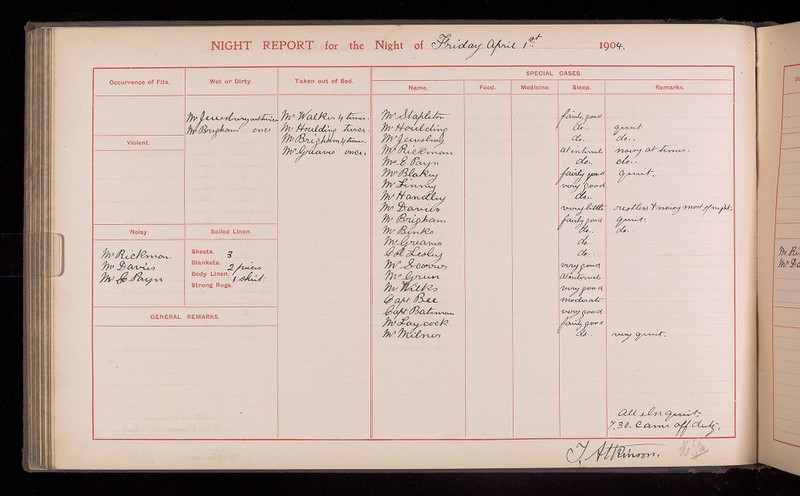 NIGHT REPORT for the Night of Friday April 1st 1904.
SPECIAL CASES.
Occurrence of Fits. Wet or Dirty. Taken out of Bed. Name. Food. Medicine. Sleep. Remarks.
Mr Jewsbury Mr Walker 4 times. Mr Stapleton fairly good
Mr Brigham once Mr Houlding twice. Mr Houlding do.. quiet
Violent. Mr Brigham 4 times. Mr Jewsbury do. do..
Mr Greaves once. Mr Rickman at intervals noisy at times.
Mr E Payn do.. do..
Mr Blakey fairly good quiet.
Mr Finney very good
Mr Handley do..
Mr Davies very little restless & noisy most of night.
Mr Brigham fairly good quiet.
Noisy. Soiled Linen. Mr Binks do.. do..
Mr Greaves do..
Mr Rickman. Sheets. 3 Col Lesley do..
Mr Davies Blankets. 2 pieces very good
Mr E Payn Body Linen. 1 shirt Mr Green at intervals
Strong Rugs. Mr Wilks very good
Capt Bee moderate
GENERAL REMARKS. Capt Bateman very good
Mr Laycock fairly good
Mr Milner do.. very quiet.
All else quiet
7.30. Came off duty.
T. Atkinson.